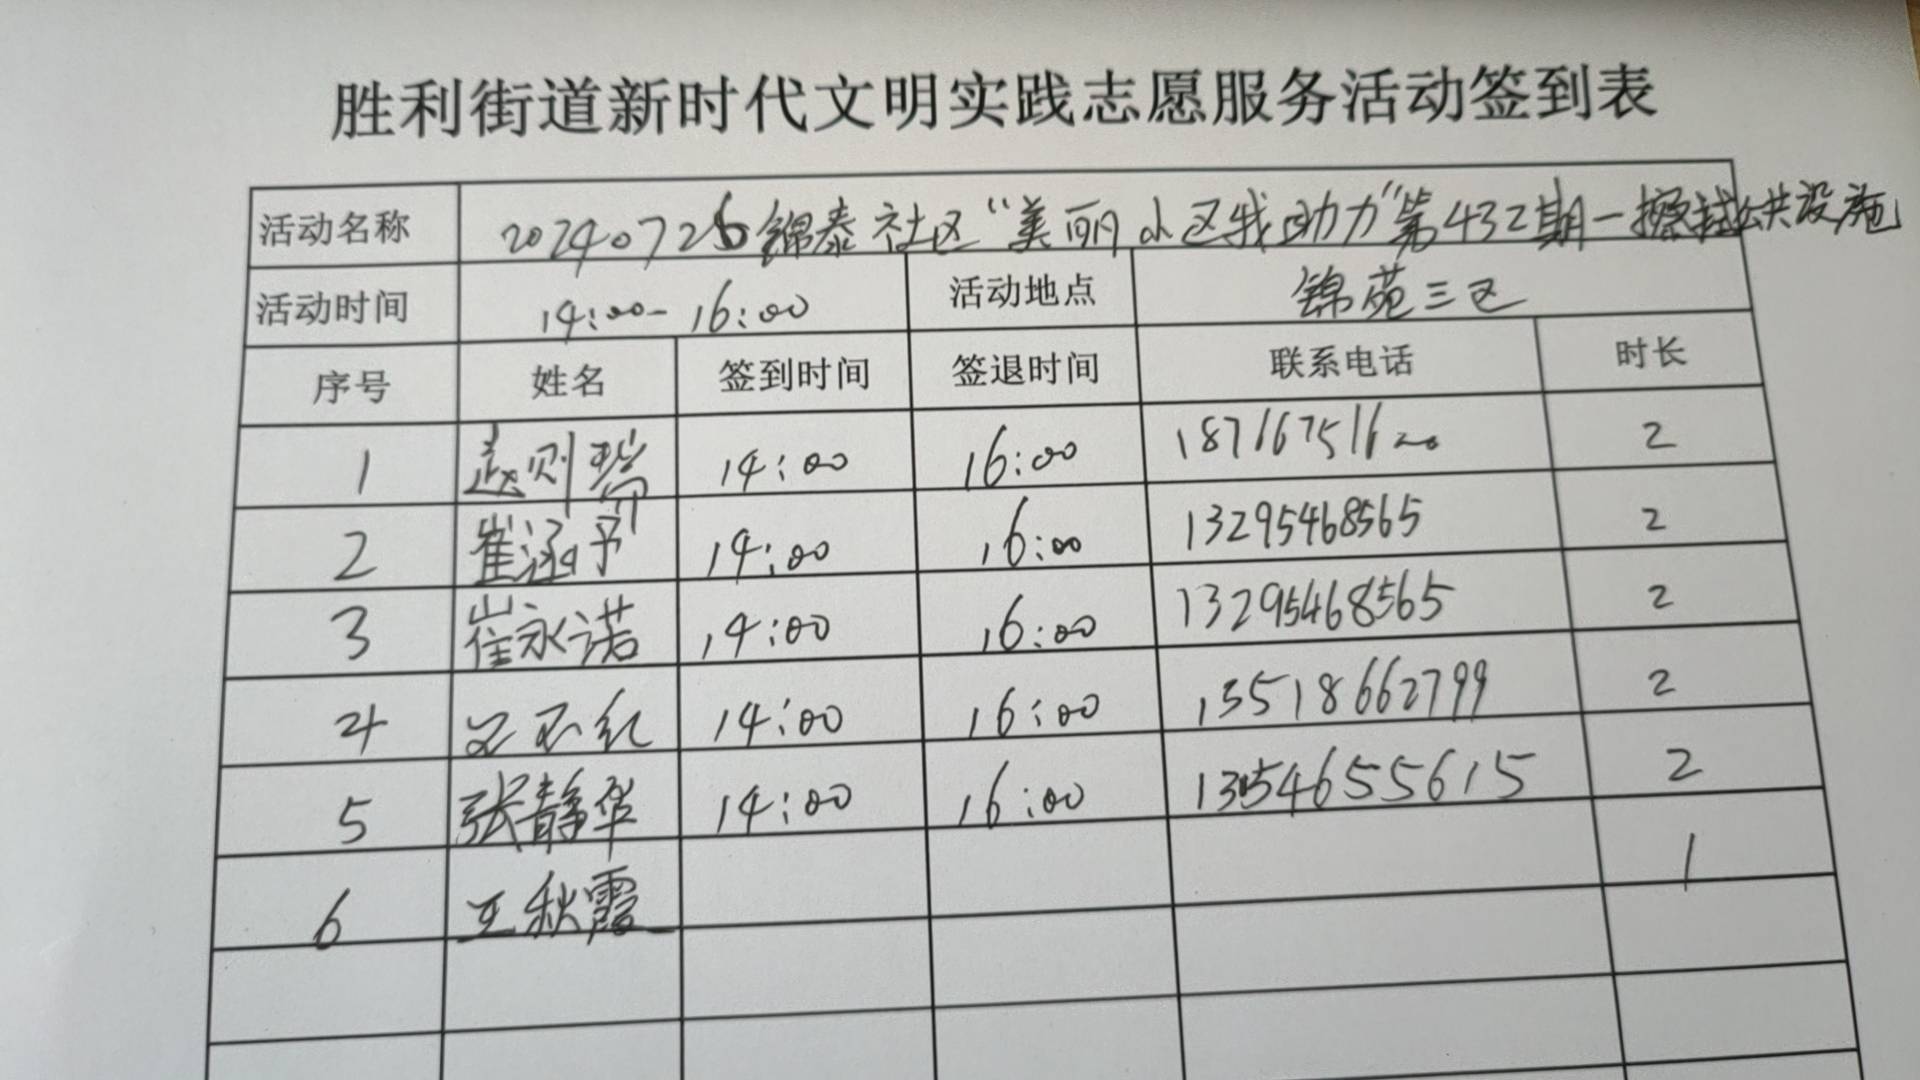 胜利街道新时代文明实践志愿服务活动签到表
活动名称 20240726锦泰社区“美丽小区我助力”第432期—擦拭公共设施
活动时间 14:00-16:00 活动地点 锦苑三区
序号 姓名 签到时间 签退时间 联系电话 时长
1 赵则瑞 14:00 16:00 2
2 崔涵予 14:00 16:00 13295468565 2
3 崔永诺 14:00 16:00 13295468565 2
4 14:00 16:00 13518662799 2
5 张静华 14:00 16:00 2
6 王秋霞 1